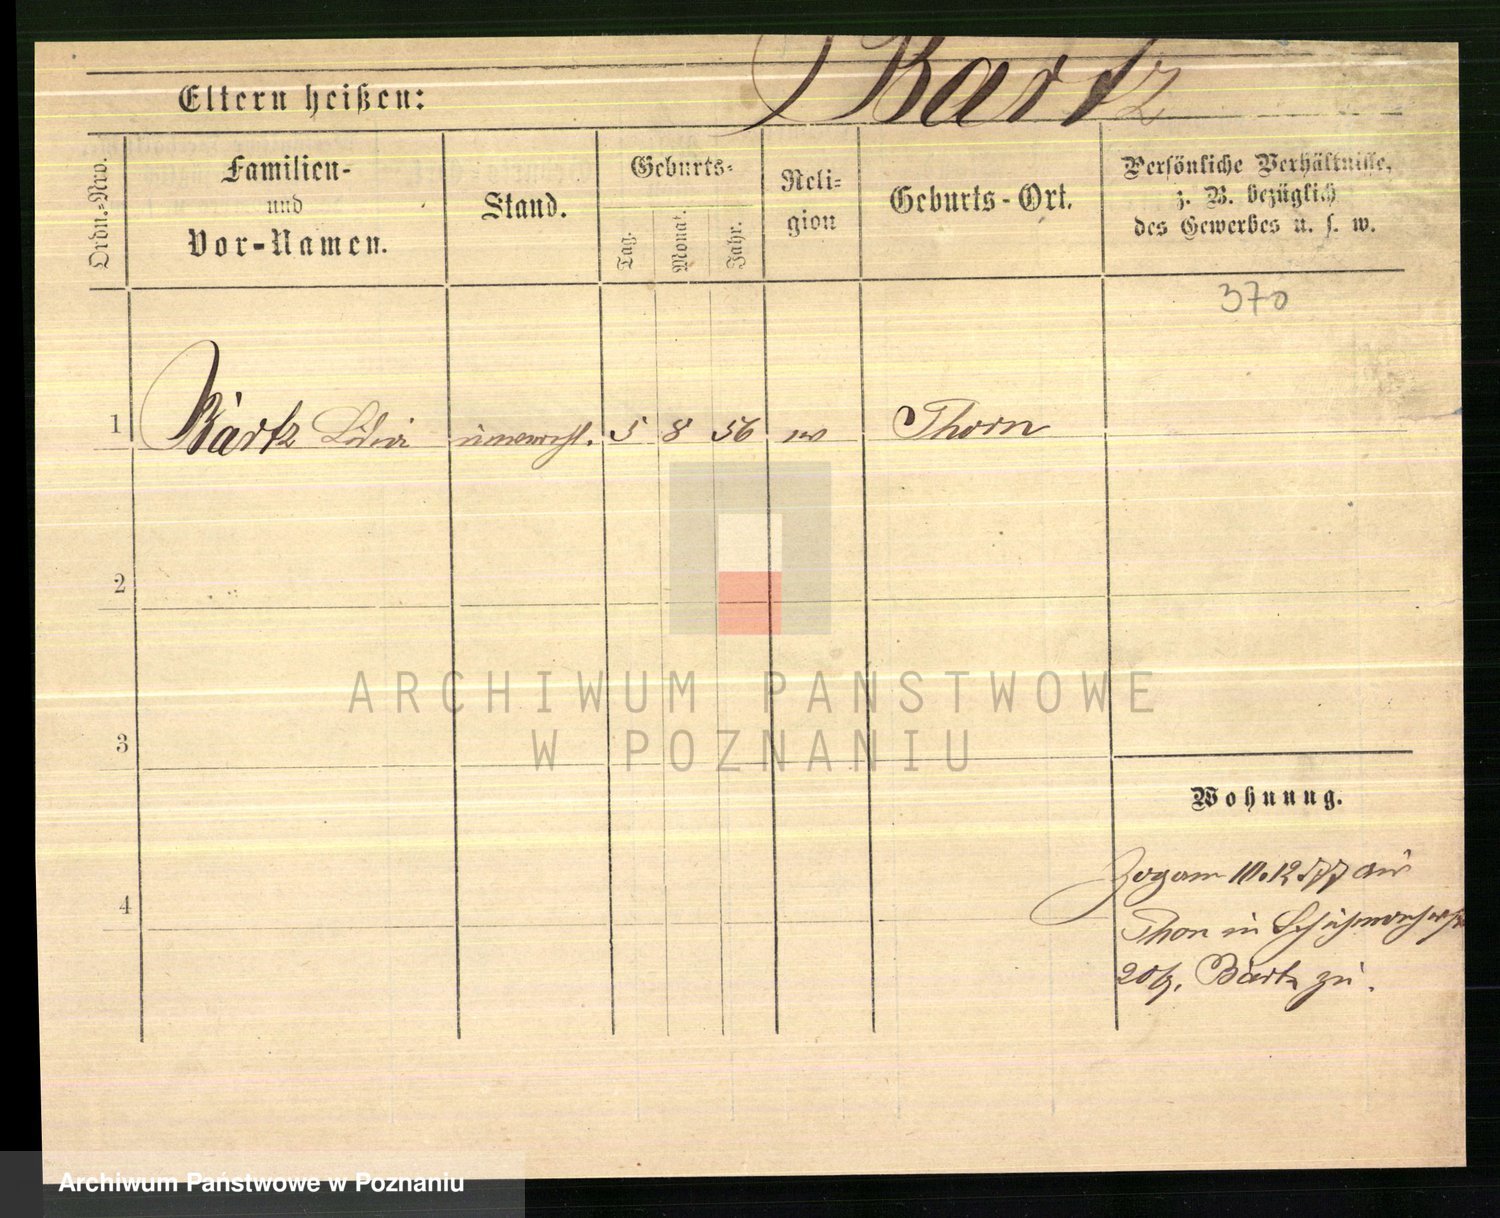 Bartz
Eltern heißen:
Ordn.-Nro.
Familien-
und
Vor-Namen.
Stand.
Geburts-
Tag.
Monat.
Jahr.
Reli-
gion
Geburts-Ort.
Persönliche Verhältnisse,
z. B. bezüglich
des Gewerbes u. s. w.
370
1 Bartz 5 8 56 Thorn
2
3
4
ARCHIWUM PAŃSTWOWE
W POZNANIU
Wohnung.
Zog am 10.12.77 aus
Thorn in
20/ Bartz zu.
Archiwum Państwowe w Poznaniu